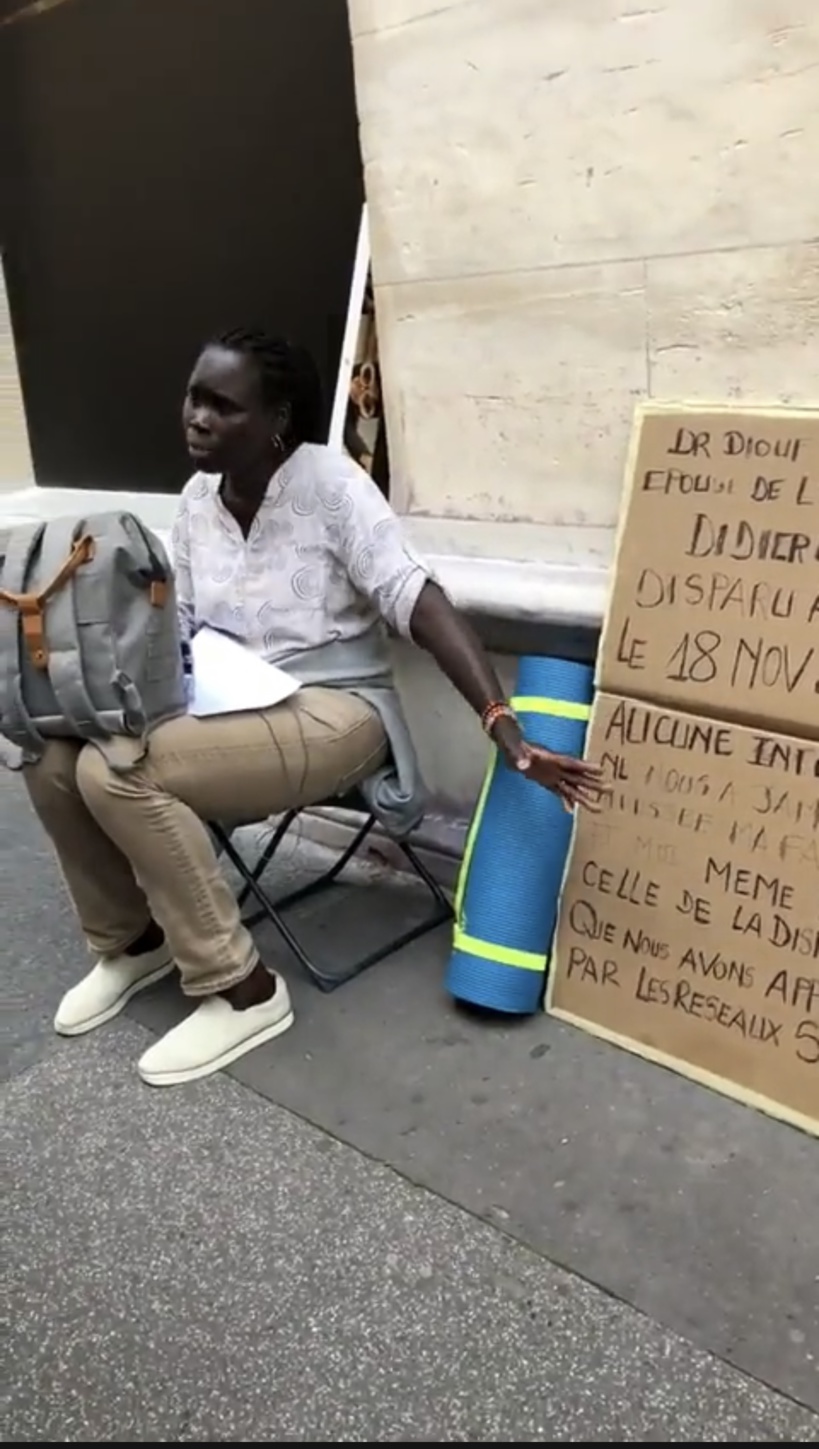 DR DIOUF
EPOUSE DE L
DIDIER
DISPARU A
LE 18 NOV.
AUCUNE INT
NE NOUS A JAM
MA FA
ET MOI MEME
CELLE DE LA DISP
QUE NOUS AVONS APP
PAR LES RESEAUX S